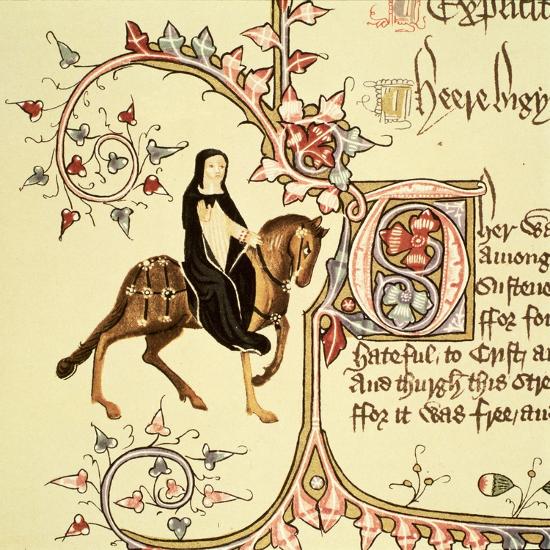 Explicit
Heere bigy
Ther wa
Among
Sustene
ffor fou
hateful, to Crist, a
And thurgh this stre
ffor it was free, and